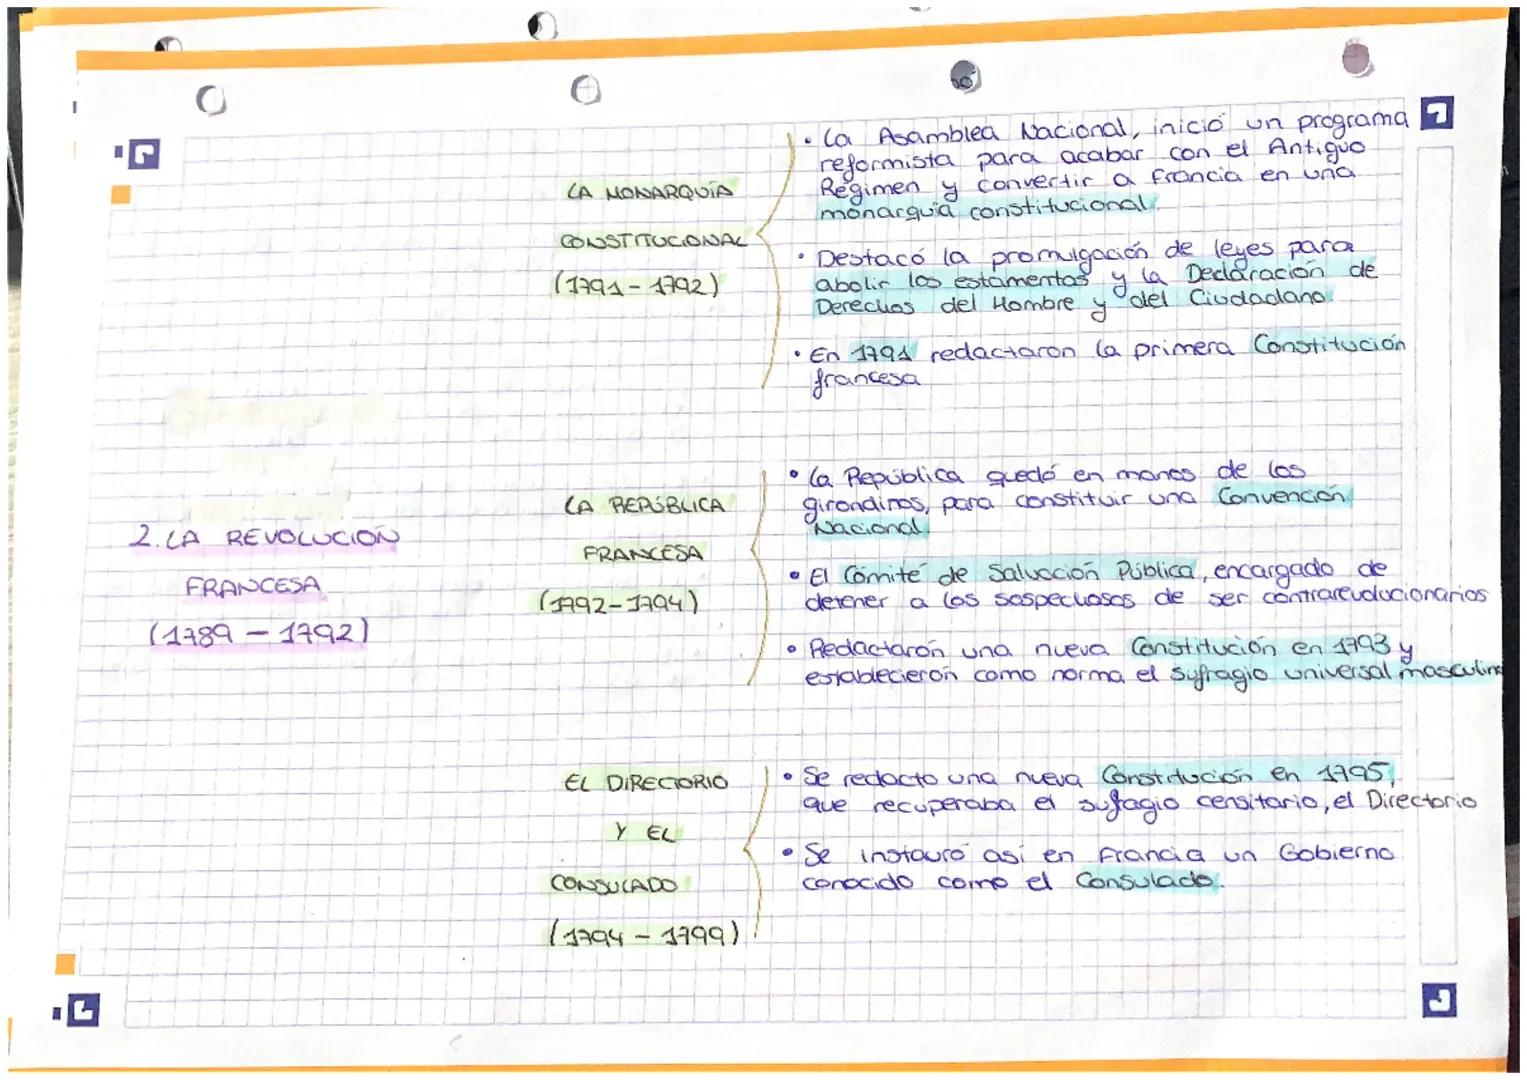 2. LA REVOLUCIÓN
FRANCESA
(1789 - 1792)
LA MONARQUÍA
CONSTITUCIONAL
(1791 - 1792)
• La Asamblea Nacional, inició un programa
reformista para acabar con el Antiguo
Régimen y convertir a Francia en una
monarquía constitucional.
• Destacó la promulgación de leyes para
abolir los estamentos y la Declaración de
Derechos del Hombre y del Ciudadano.
• En 1791 redactaron la primera Constitución
francesa
LA REPÚBLICA
FRANCESA
(1792-1794)
• La República quedó en manos de los
girondinos, para constituir una Convención
Nacional.
• El Comité de Salvación Pública, encargado de
detener a los sospechosos de ser contrarevolucionarios
• Redactarón una nueva Constitución en 1793 y
establecierón como norma el sufragio universal masculino
EL DIRECTORIO
Y EL
CONSULADO
(1794 - 1799)
• Se redacto una nueva Constitución en 1795,
que recuperaba el sufagio censitario, el Directorio
• Se instauró así en Francia un Gobierno
conocido como el Consulado.